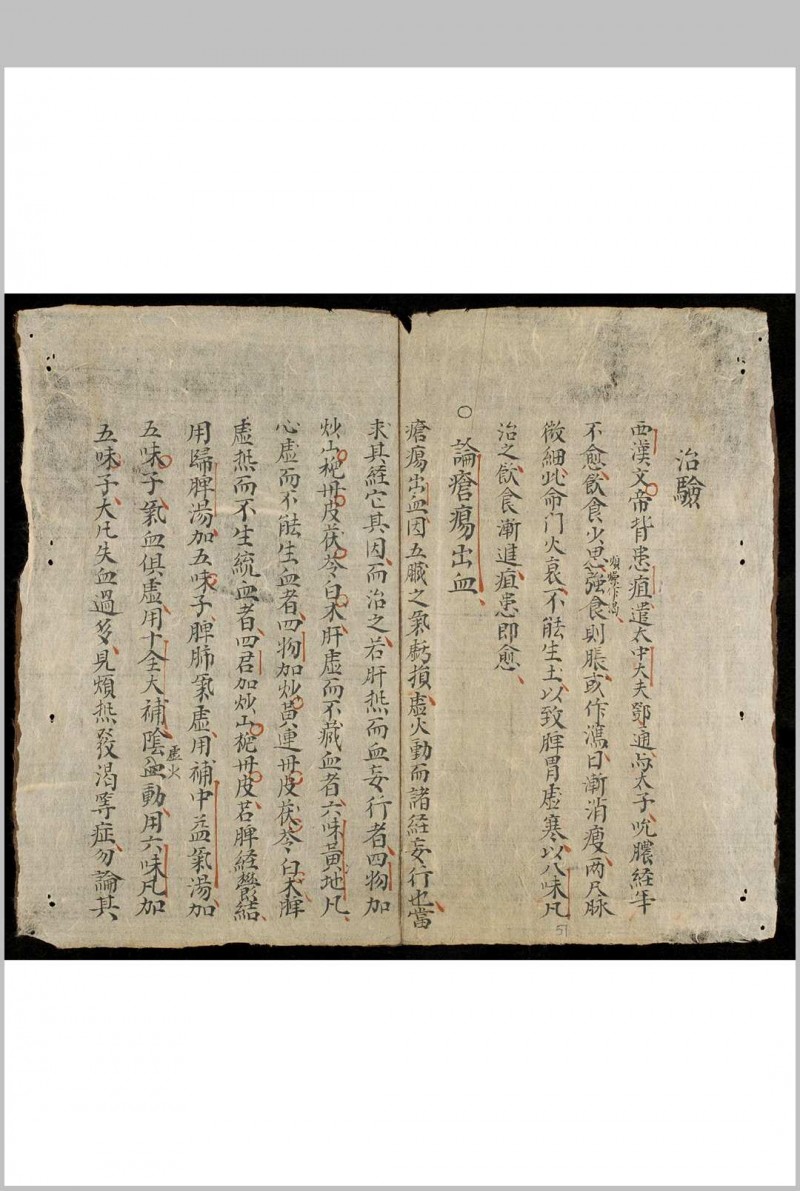 治驗
西漢文帝背患疽遣太中大夫鄧通与太子吮膿経年
不愈飲食少思強食則脹或作瀉日漸消瘦两尺脉
微細此命门火衰不能生土以致脾胃虛寒以八味凡
治之飲食漸進疽患即愈
○論瘡瘍出血
瘡瘍出血因五臟之氣虧損虛火動而諸経妄行也當
求其経它其因而治之若肝热而血妄行者四物加
炒山梔丹皮茯苓白术肝虛而不藏血者六味黃地凡
心虛而不能生血者四物加炒黄連丹皮茯苓白术脾
虛热而不生統血者四君加炒山梔丹皮若脾経鬱結
用歸脾湯加五味子脾肺氣虛用補中益氣湯加
五味子氣血俱虛用十全大補陰虛火動用六味凡加
五味子大凡失血過多見煩热發渴等症勿論其
51